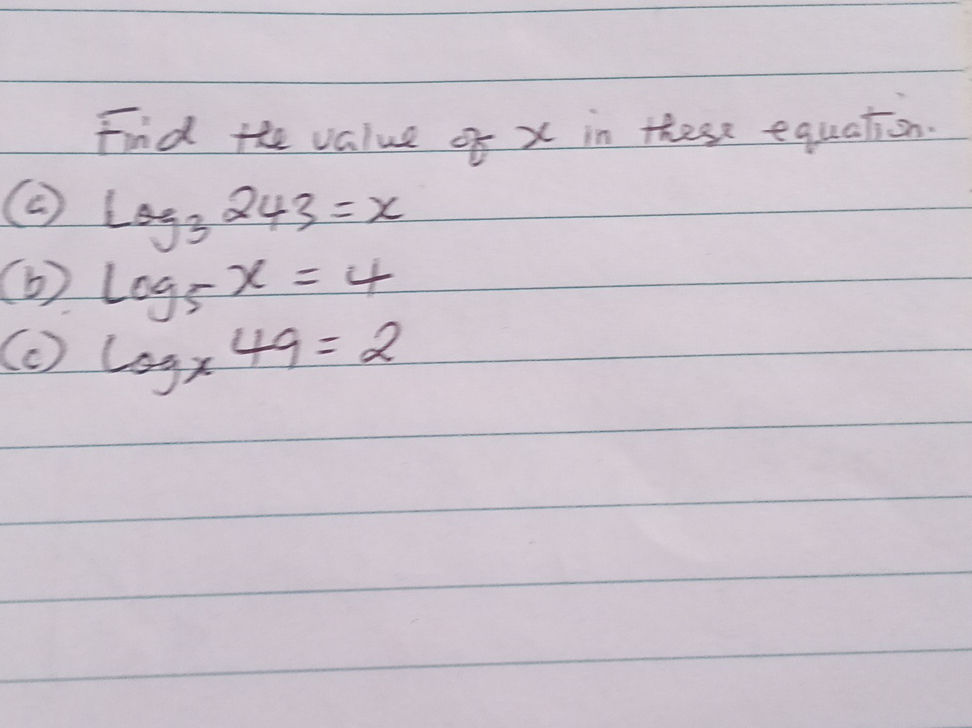 Find the value of x in these equation.
(a) Log₃ 243 = x
(b) Log₅ x = 4
(c) Logₓ 49 = 2